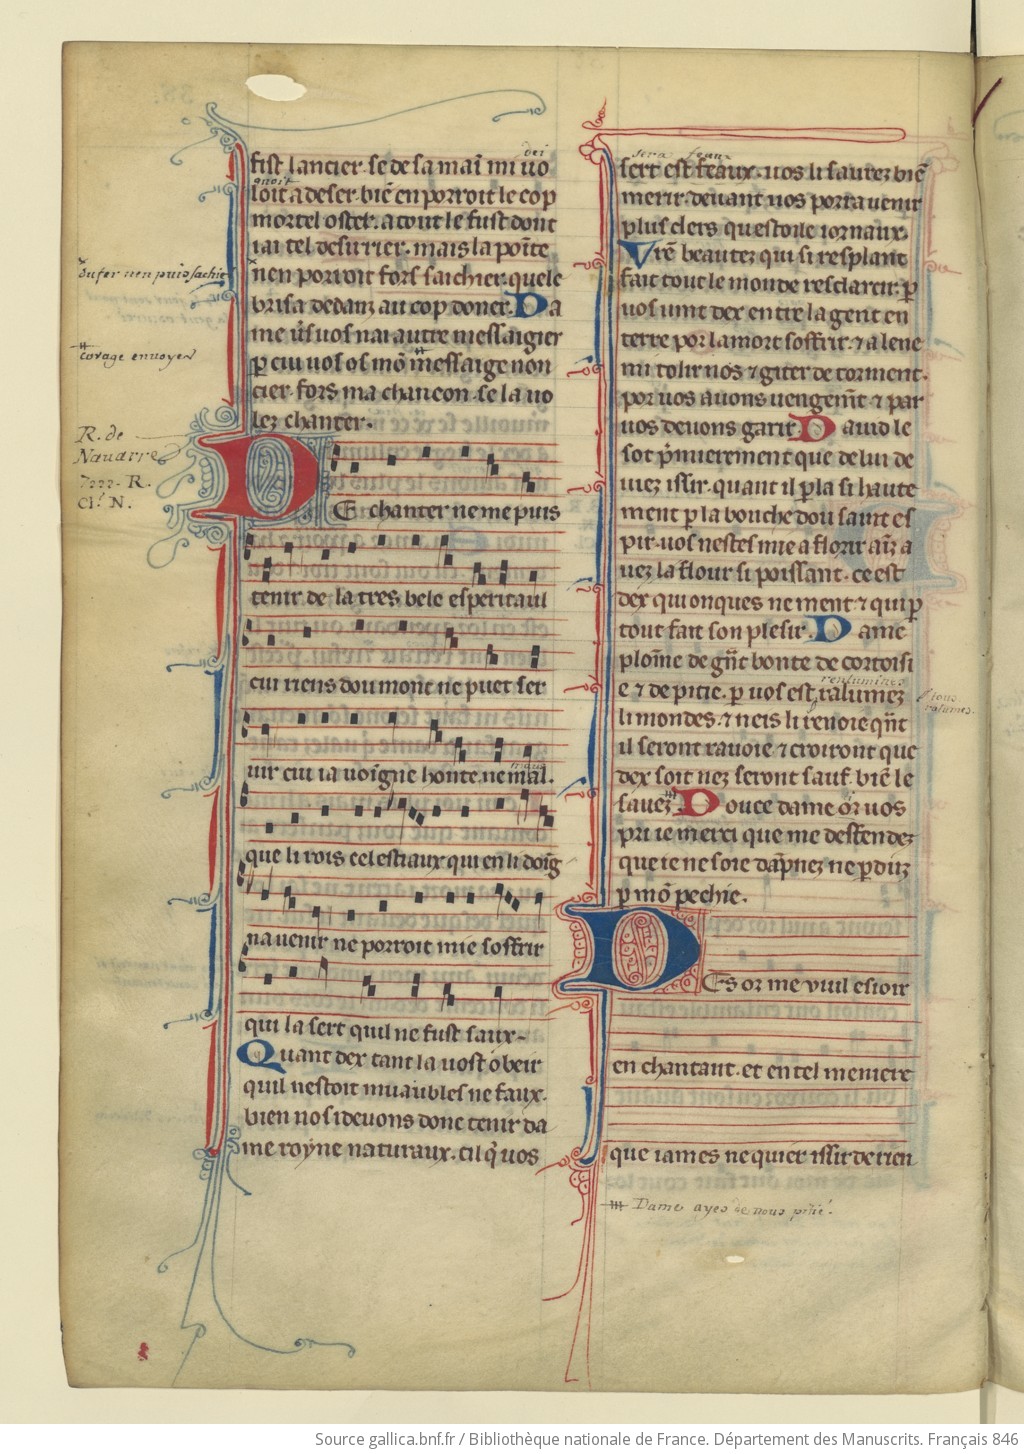 dei
fist lancier. se de sa maī mi uo
gnoit
loit a deser. biē en porroit le cop
mortel oster. a tout le fust dont
iai tel desirrier. mais la poīte
nen porroit fors saichier. quele
brisa dedanz au cop doner. Da
me ūs uos nai autre messaigier
ꝑ cui uos os mō messaige non
cier. fors ma chancon. se la uo
lez chanter.
du fer nen puis sachier
corage enuoyer
R. de
Nauarre
R.
Cl. N.
DE chanter ne me puis
tenir de la tres bele esperitaul
cui riens dou mont ne puet ser
uir cui ia uoigne honte. ne mal.
que li rois celestiaux qui en li doig
na uenir ne porroit mie soffrir
qui la sert quil ne fust saux.
Quant dex tant la uost obeir
quil nestoit muaubles ne faux.
bien nos i deuons donc tenir da
me royne naturaux. cil q̄ uos
sera feaux
sert est feaux. uos li saurez biē
merir. deuant uos porra uenir
plus clers questoile iornaux.
Vrē beautez qui si resplant
fait tout le monde resclarcir. ꝑ
uos uint dex entre la gent en
terre por la mort soffrir. ⁊ a lene
mi tolir nos ⁊ giter de torment.
por uos auons uengemt ⁊ par
uos deuons garir. Dauid le
sot p̄mierement que de lui de
uiez issir. quant il ꝑla si haute
ment ꝑ la bouche dou saint es
pir. uos nestes mie a florir aīz a
uez la flour si poissant. ce est
dex qui onques ne ment ⁊ qui ꝑ
tout fait son plesir. Dame
ploīne de gn̄t bonte de cortoisi
renlumines
e ⁊ de pitie. ꝑ uos est ralumez
li mondes. ⁊ neis li renoie qn̄t
il seront rauoie ⁊ croiront que
dex soit nez seront sauf. biē le
sauez. Douce dame ōr uos
pri ie merci que me deffendez
que ie ne soie dāpnez ne ꝑduz
ꝑ mō pechie.
DEs or me vuil esioir
en chantant. et en tel meniere
que iames ne quier issir de rien
Dame ayes de nous pitié.
Source gallica.bnf.fr / Bibliothèque nationale de France. Département des Manuscrits. Français 846